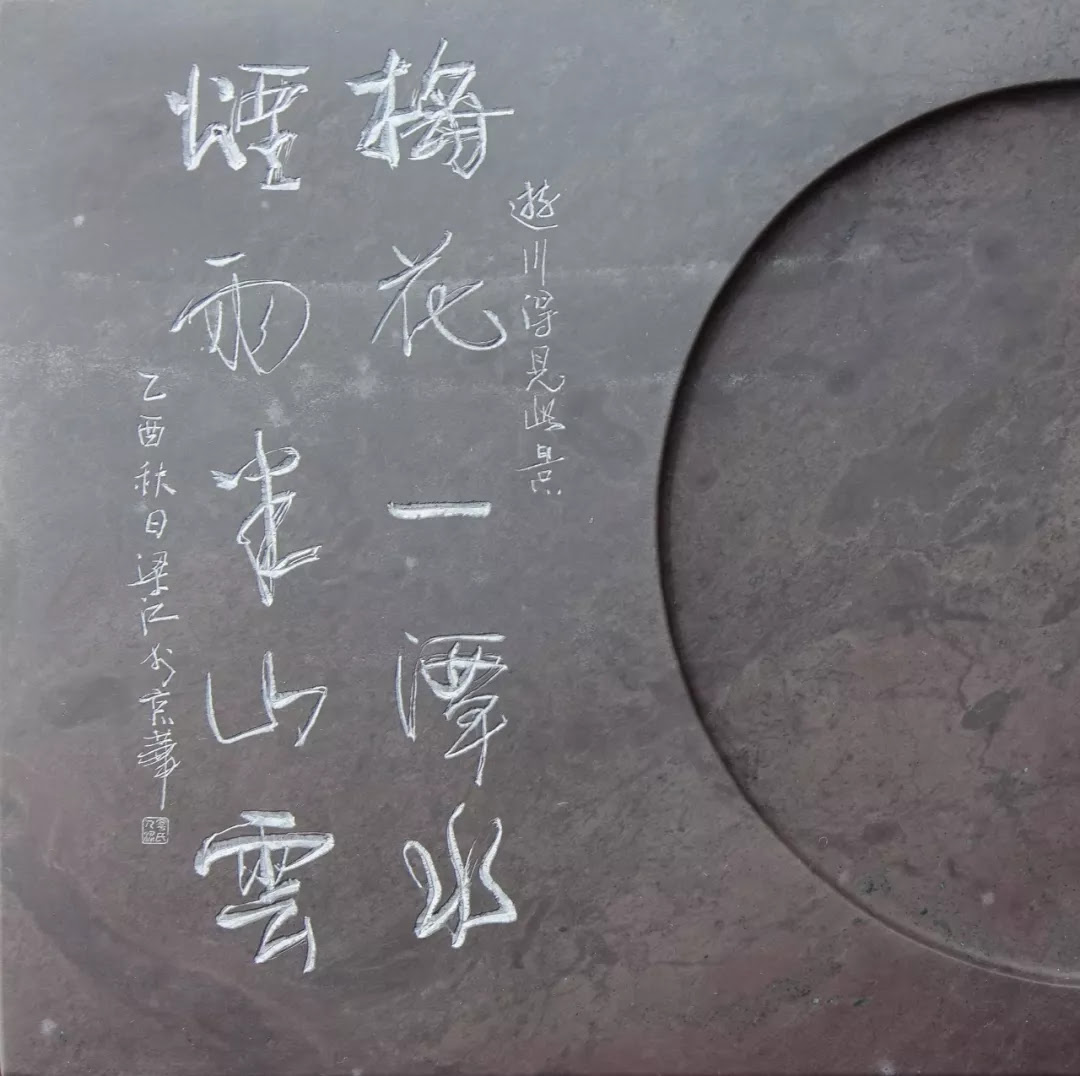 遊川得見此景
梅花一潭水
煙雨半山雲
乙酉秋日梁江书京華